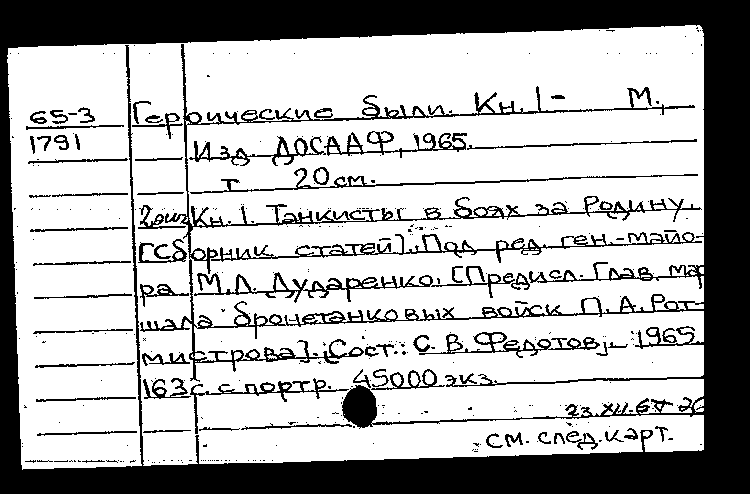 65-3 Героические были. Кн. 1- М.,
1791 Изд. ДОСААФ, 1965.
т 20 см.
2 экз Кн. 1. Танкисты в боях за Родину.
[Сборник статей]. Под ред. ген.-майо-
ра М.Л. Дударенко. [Предисл. Глав. мар
шала бронетанковых войск П.А. Рот-
мистрова]. [Сост.: С.В. Федотов]. 1965
163 с. с портр. 45000 экз.
23.XII.65
см. след. карт.